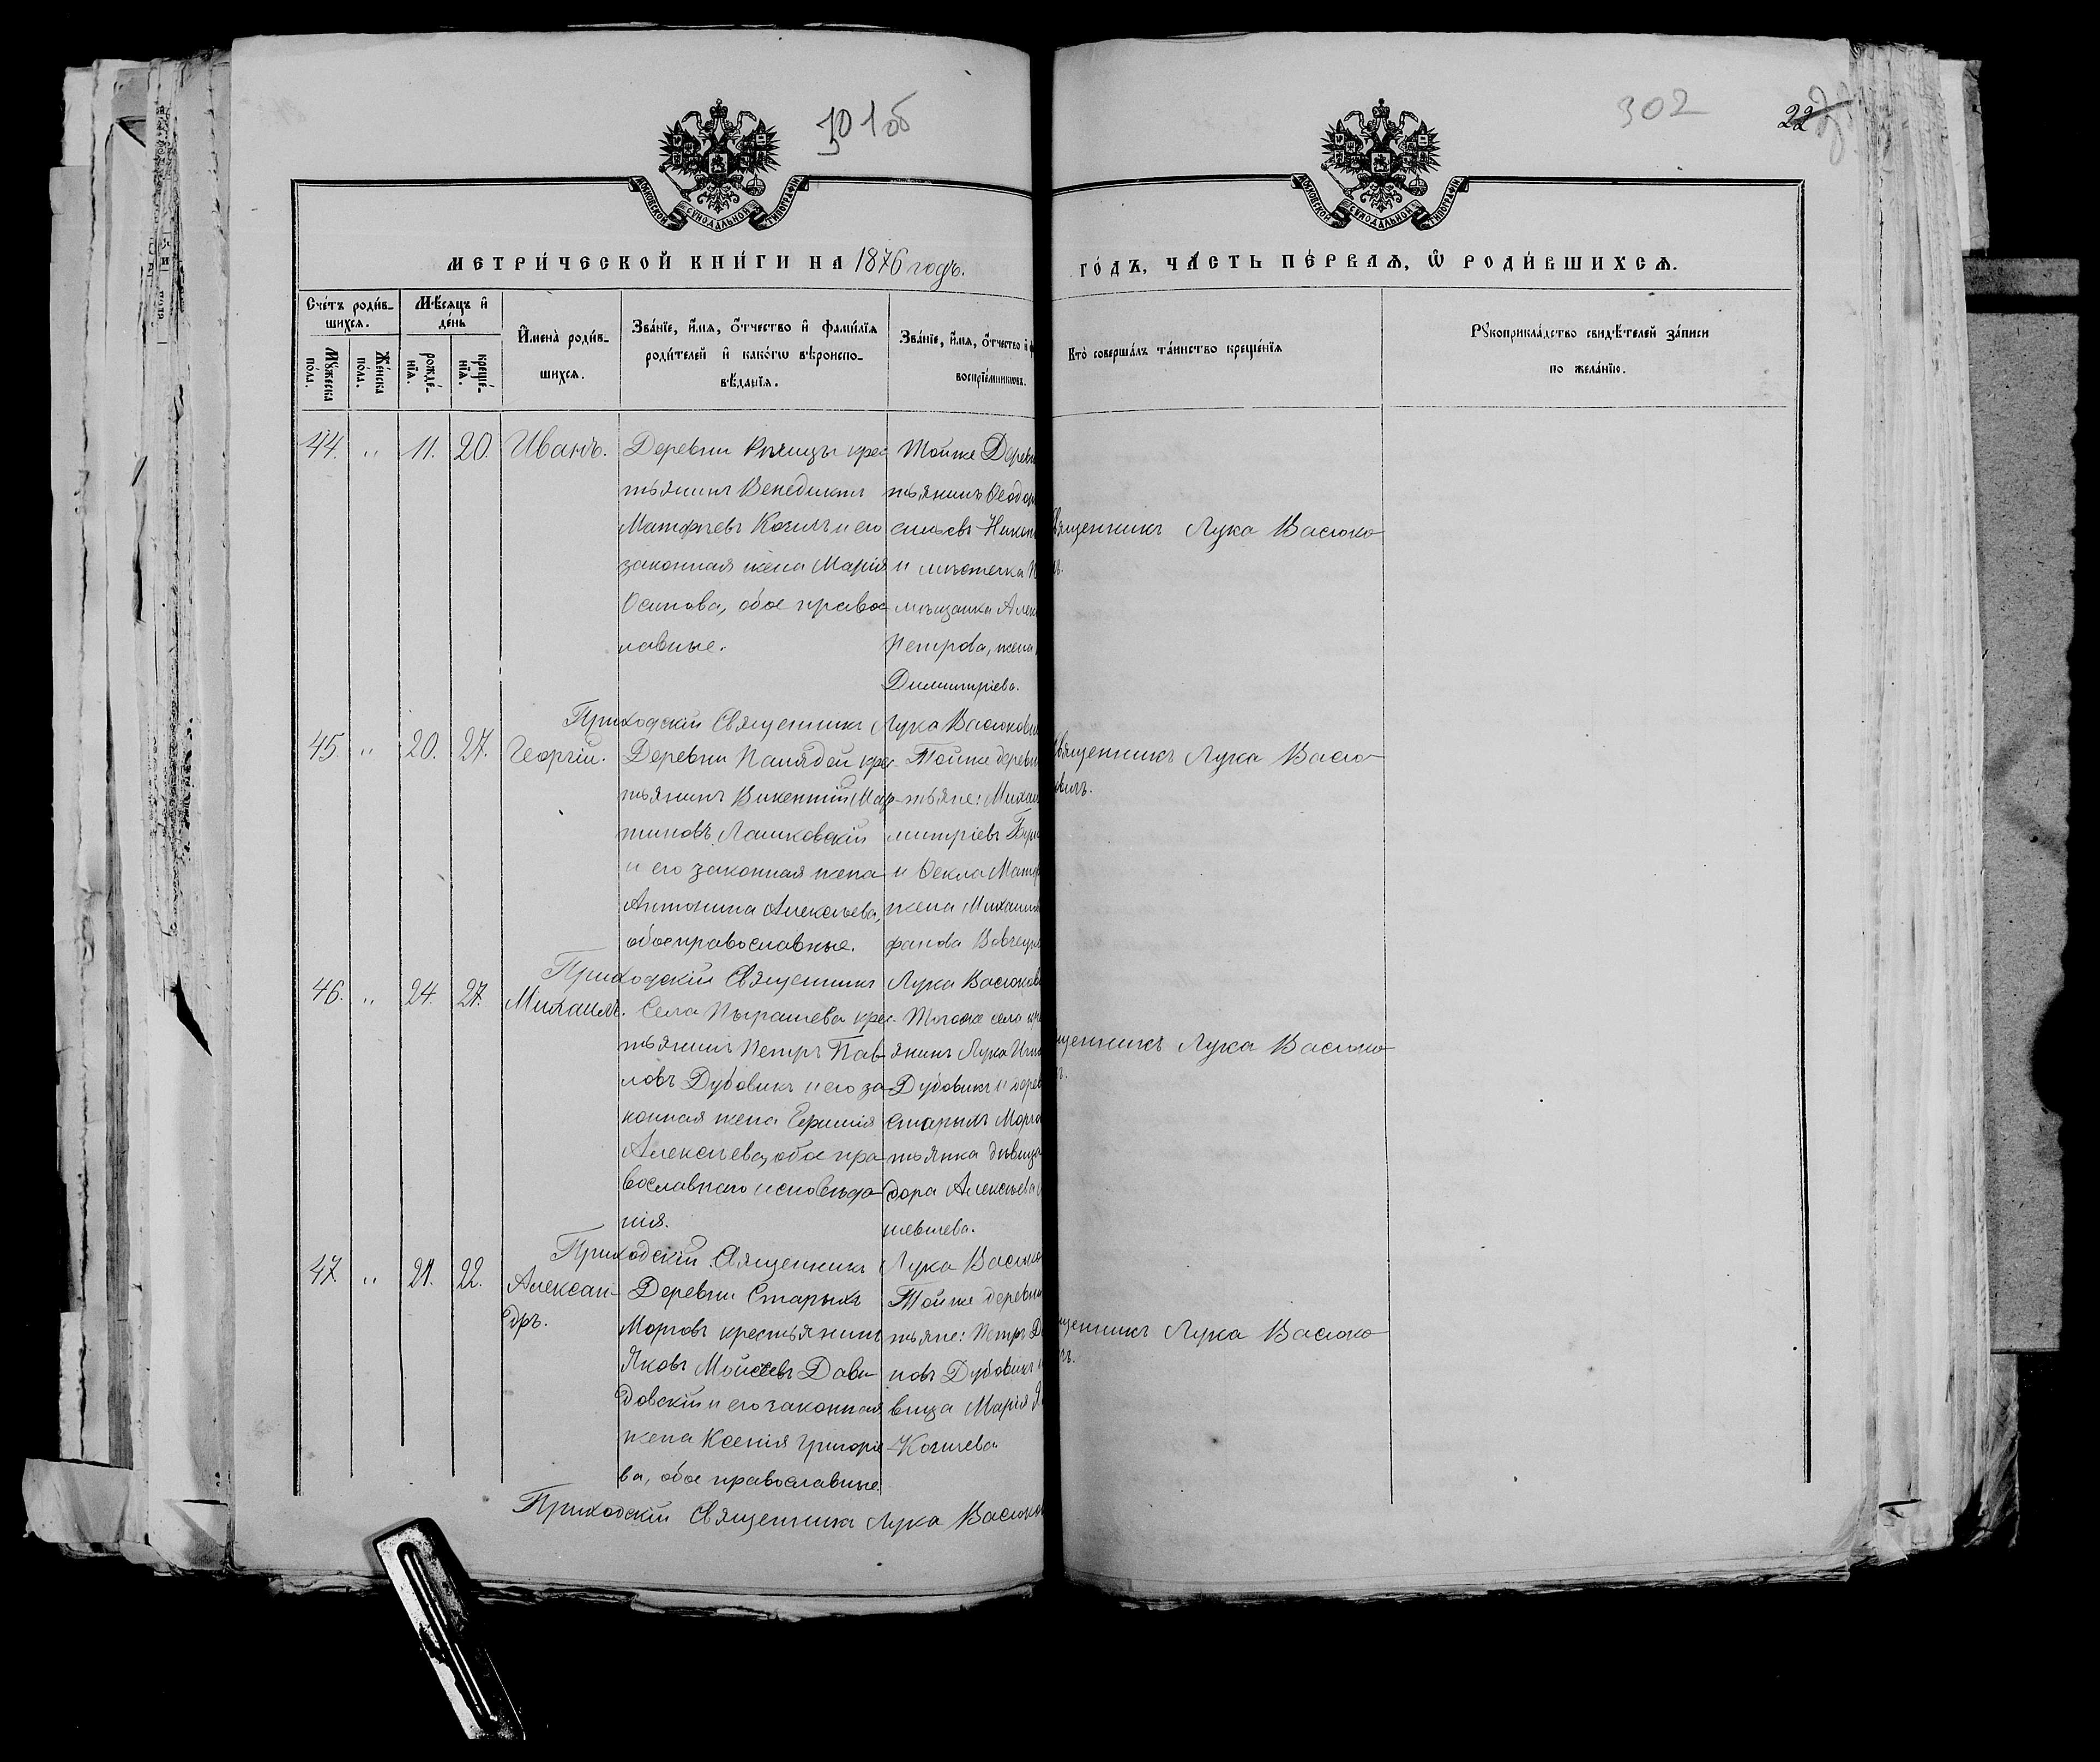 301 об
302
22
МОСКОВСКОЙ СѴНОДАЛЬНОЙ ТИПОГРАФІИ
МОСКОВСКОЙ СѴНОДАЛЬНОЙ ТИПОГРАФІИ
МЕТРИ́ЧЕСКОЙ КНИ́ГИ НА 1876 годъ.
ГО́ДЪ, ЧА́СТЬ ПЕ́РВАѦ, Ѿ РОДИ́ВШИХСѦ.
Сче́тъ роди́в-
шихсѧ.
Мѣ́сяцъ и҆
де́нь
Мꙋ́жеска
по́ла.
Же́нска
по́ла.
рожде́-
нїѧ.
креще́-
нїѧ.
И҆мена̀ роди́в-
шихсѧ.
Зва́нїе, и҆́мѧ, ѻ҆́тчество и҆ фами́лїѧ
роди́телей и҆ како́гѡ вѣроиспо-
вѣ́данїѧ.
Зва́нїе, и҆́мѧ, ѻ҆́тчество и҆
воспрїе́мникѡвъ.
Кто̀ соверша́лъ та́инство креще́нїѧ
Рꙋкоприкла́дство свидѣ́телей за́писи
по жела́нїю.
44. " 11. 20. Иванъ.
Деревни крес-
тьянинъ Венедиктъ
Матфѣевъ и его
законная жена Марія
Осипова, обое правос-
лавные.
Тойже Деревн
тьянинъ Ѳеодор

и мѣстечка
мѣщанка Алек
Петрова, жена
Димитріева.
Священникъ Лука Васюко

Приходскій Священникъ Лука Васюкови
45. " 20. 27. Георгій.
Деревни крес-
тьянинъ Викентій Мар-
тиновъ Лашковскій
и его законная жена
Антонина Алексѣева,
обое православные.
Тойже деревн
тьяне: Михаи
митріевъ
и Ѳекла Матф
жена Михаила

Священникъ Лука Васю-
ковичъ.
Приходскій Священникъ Лука Васюкови
46. " 24. 27. Михаилъ.
Села Пырашева крес-
тьянинъ Петръ Пав-
ловъ Дубовикъ и его за-
конная жена
Алексѣева, обое пра-
вославнаго исповѣда-
нія.
Тогоже села кре
янинъ Лука
Дубовикъ и дерев
Старыхъ Морго
тьянка дѣвица
дора Алексѣева

щенникъ Лука Васюко

Приходскій Священникъ Лука Васюко
47. " 21. 22. Алексан-
дръ.
Деревни Старыхъ
Морговъ крестьянинъ
Яковъ Моисеевъ Дави-
довскій и его законная
жена Ксенія Григоріе-
ва, обое православные.
Тойже деревни
тьяне: Петръ
новъ Дубовикъ и
вица Марія

щенникъ Лука Васюко

Приходскій Священникъ Лука Васюко